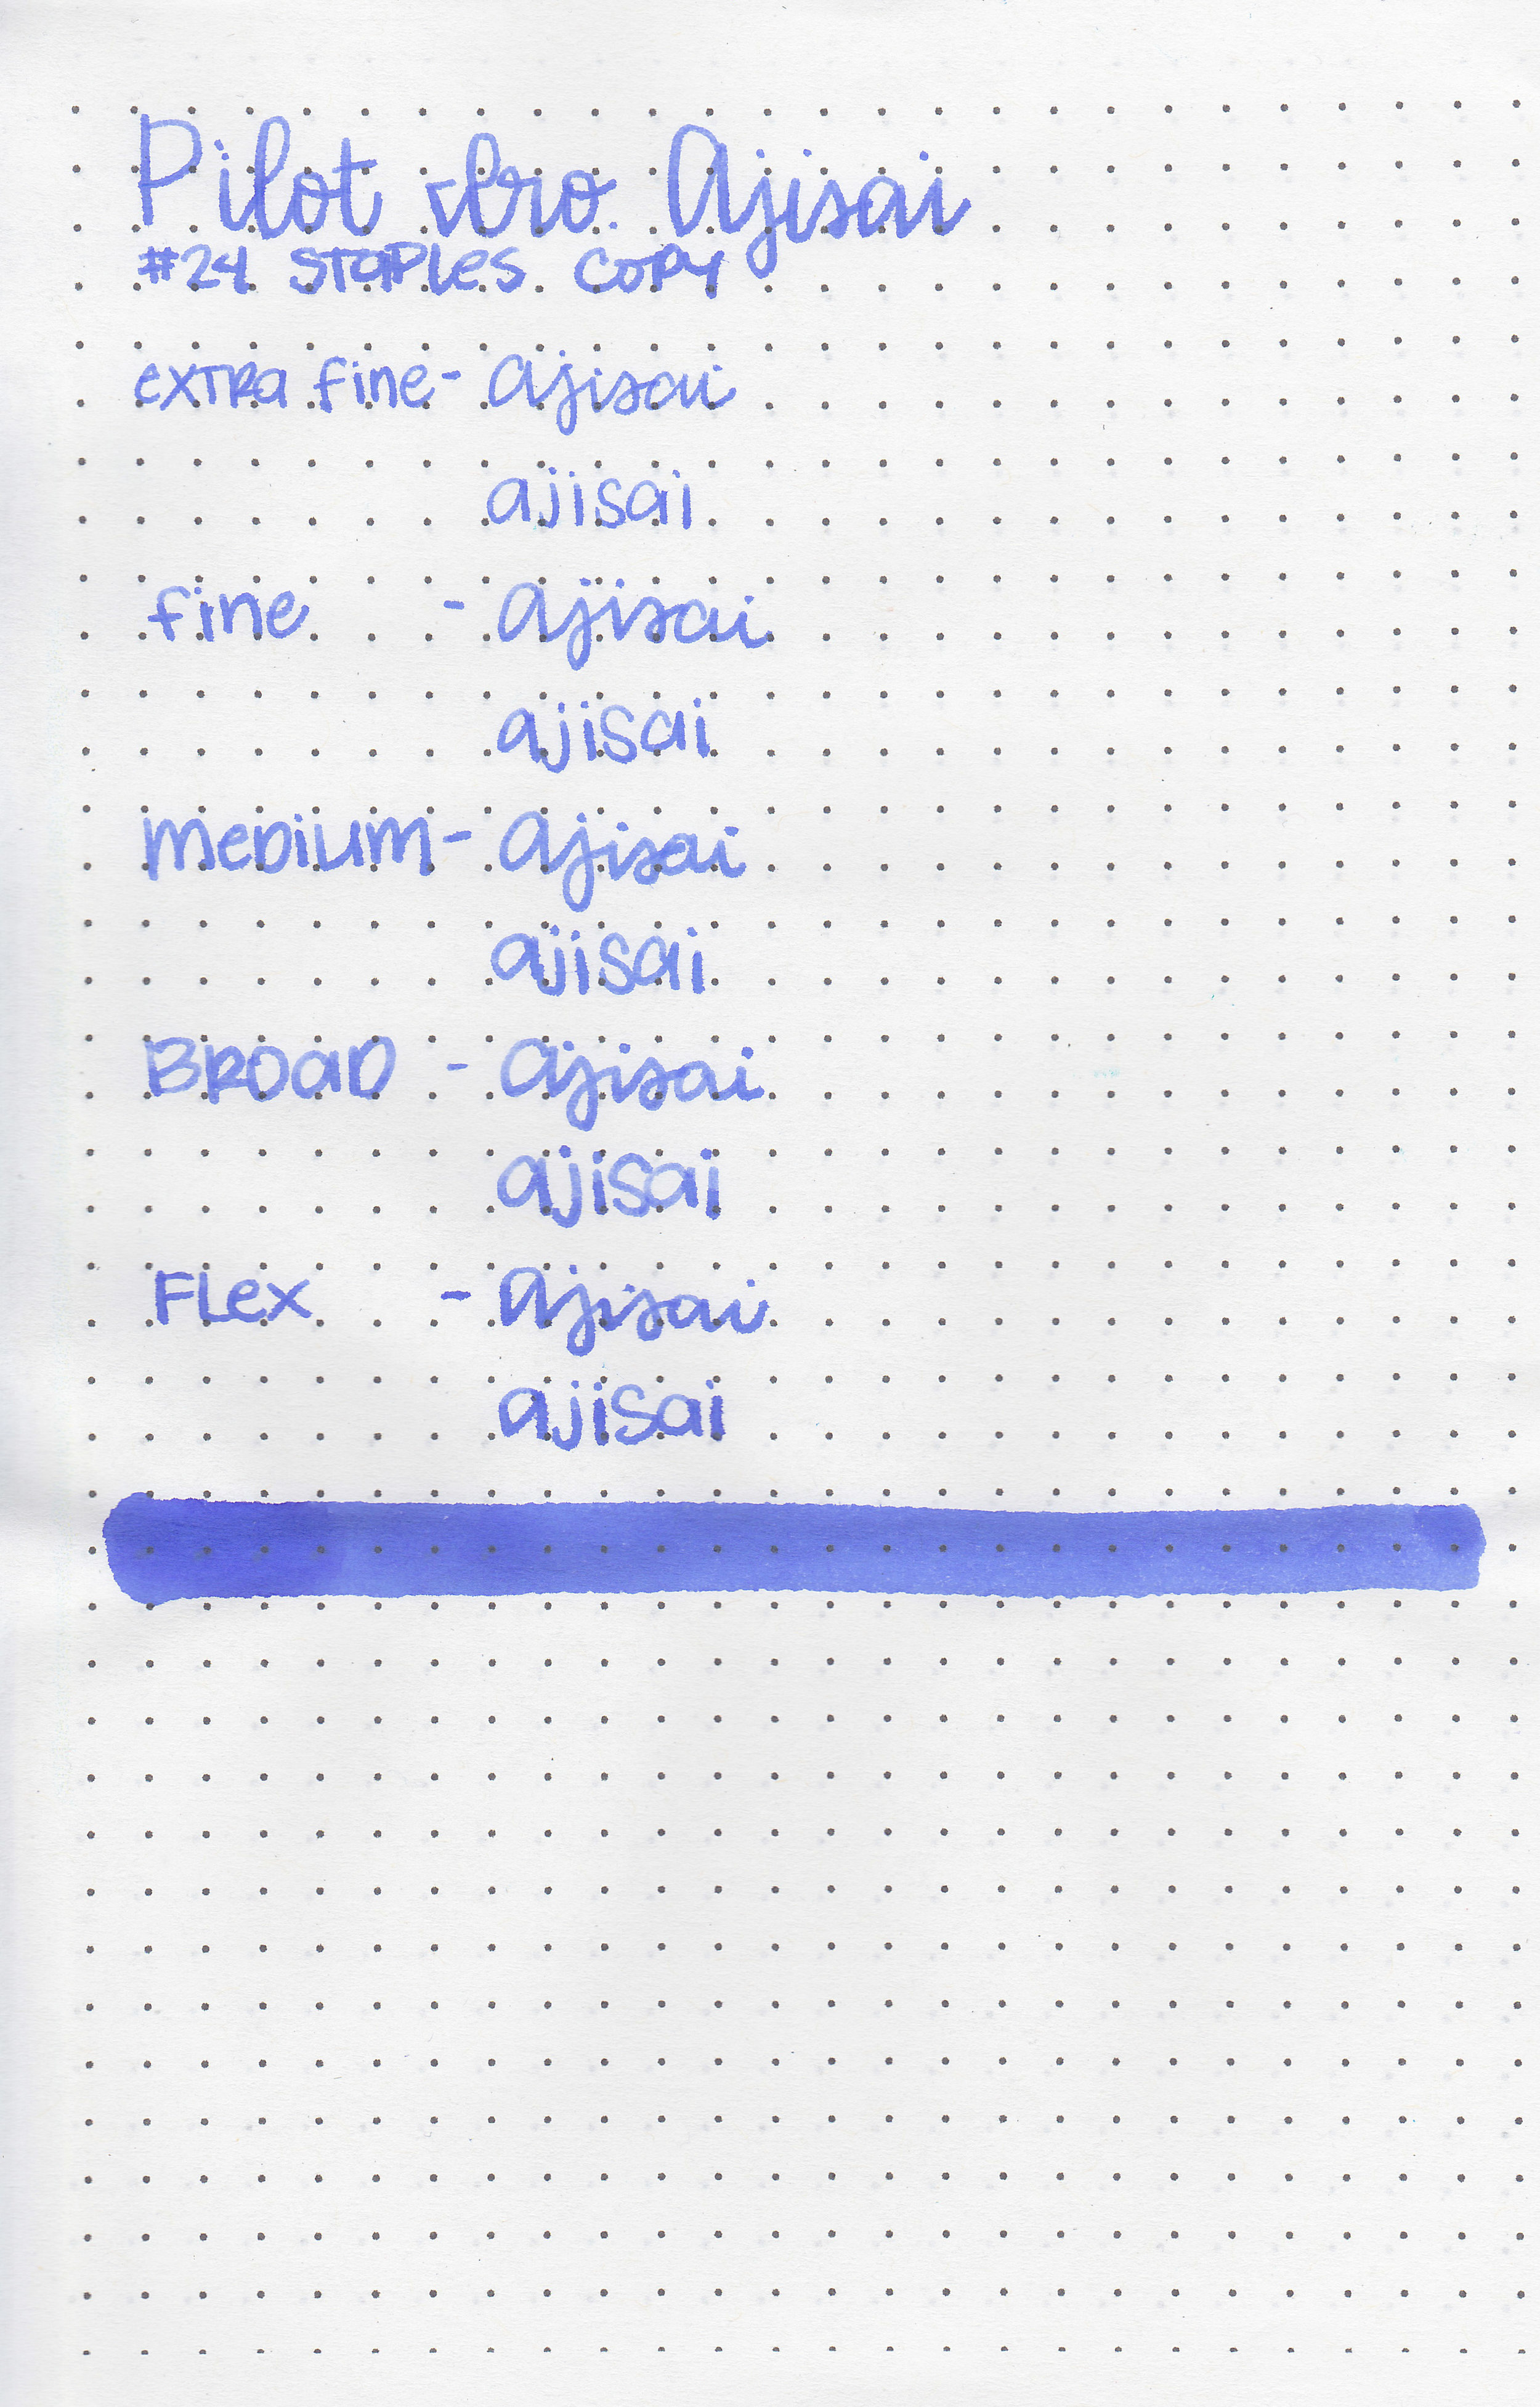 Pilot Iro. Ajisai
#24 Staples copy
extra fine - ajisai
ajisai
fine - ajisai
ajisai
Medium - ajisai
ajisai
Broad - ajisai
ajisai
Flex - ajisai
ajisai